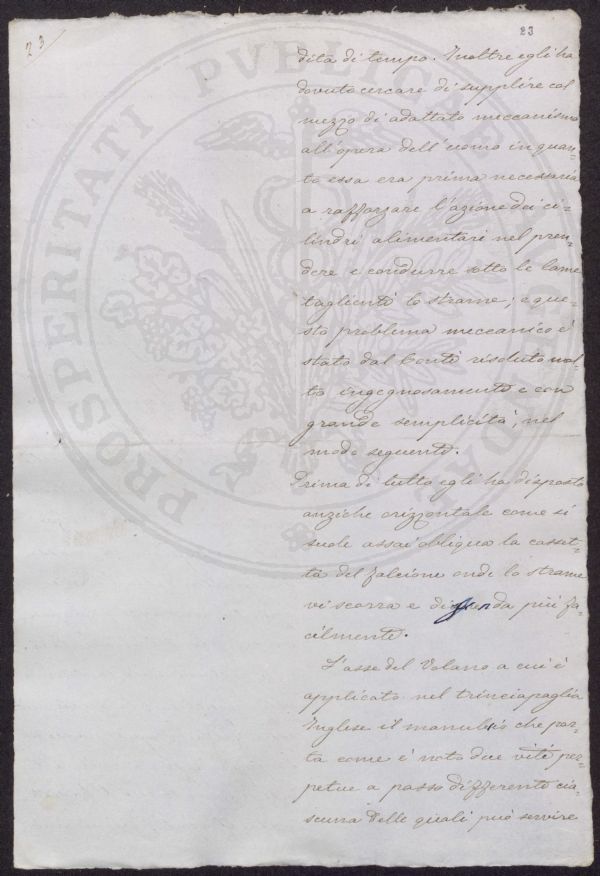 23
23
PROSPERITATI PUBLICAE AUGENDAE
dita di tempo. Inoltre egli ha
dovuto cercare di supplire col
mezzo di adattato meccanismo
all'opera dell'uomo in quan-
to essa era prima necessaria
a rafforzare l'azione dei ci-
lindri alimentari nel pren-
dere e condurre sotto le lame
taglienti lo strame; e que-
sto problema meccanico è
stato dal Conti risoluto mol-
to ingegnosamente e con
grande semplicità, nel
modo seguente.
Prima di tutto egli ha disposto
anziche orizzontale come si
suole assai obliqua la casset-
ta del falcione onde lo strame
vi scorra e discenda più fa-
cilmente.
L'asse del Volano a cui è
applicato nel trinciapaglia
Inglese il manubrio che por-
ta come è noto due viti per-
petue a passo differente cia-
scuna delle quali può servire